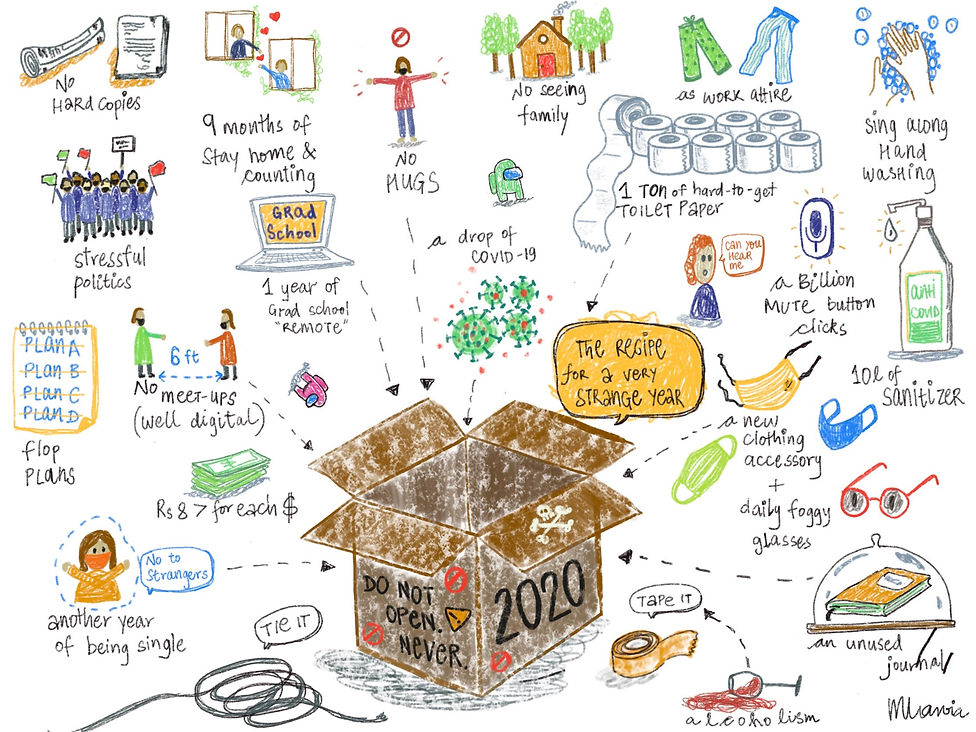 No
HaRd copies
9 months of
Stay home &
counting
No
HUGS
No seeing
family
as WORK attire
sing along
Hand
washing
stressful
politics
GRad
School
1 year of
Grad school
"REMOTE"
a drop of
COVID-19
1 Ton of hard-to-get
TOILET PapeR
can you
Hear
me
a Billion
Mute button
clicks
anti
covid
10l of
Sanitizer
PLan A
PLan B
PLan C
PLan D
flop
PLans
6 ft
No
meet-ups
(well digital)
The Recipe
for a very
Strange Year
a new
clothing
accessory
+
daily foggy
glasses
Rs 8 > for each $
No to
Strangers
another year
of being single
TIE IT
DO NOT
OPEN.
NEVER.
2020
TAPE IT
an unused
journal
alcoholism